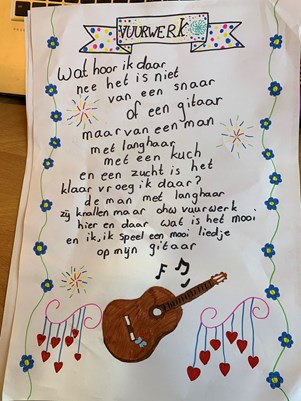 VUURWERK
Wat hoor ik daar
nee het is niet
van een snaar
of een gitaar
maar van een man
met langhaar
met een kuch
en een zucht is het
klaar vroeg ik daar?
de man met langhaar
zij knallen maar ohw vuurwerk
hier en daar wat is het mooi
en ik, ik speel een mooi liedje
op mijn gitaar